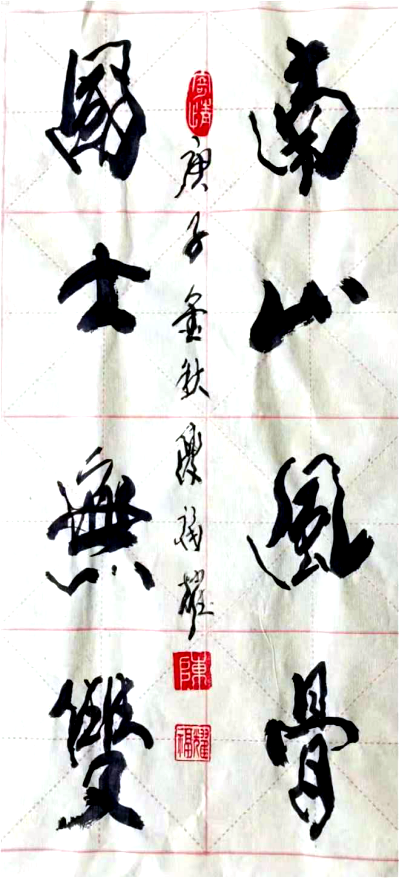 南山風骨
國士無雙
庚子金秋陳福耀
陳
福耀